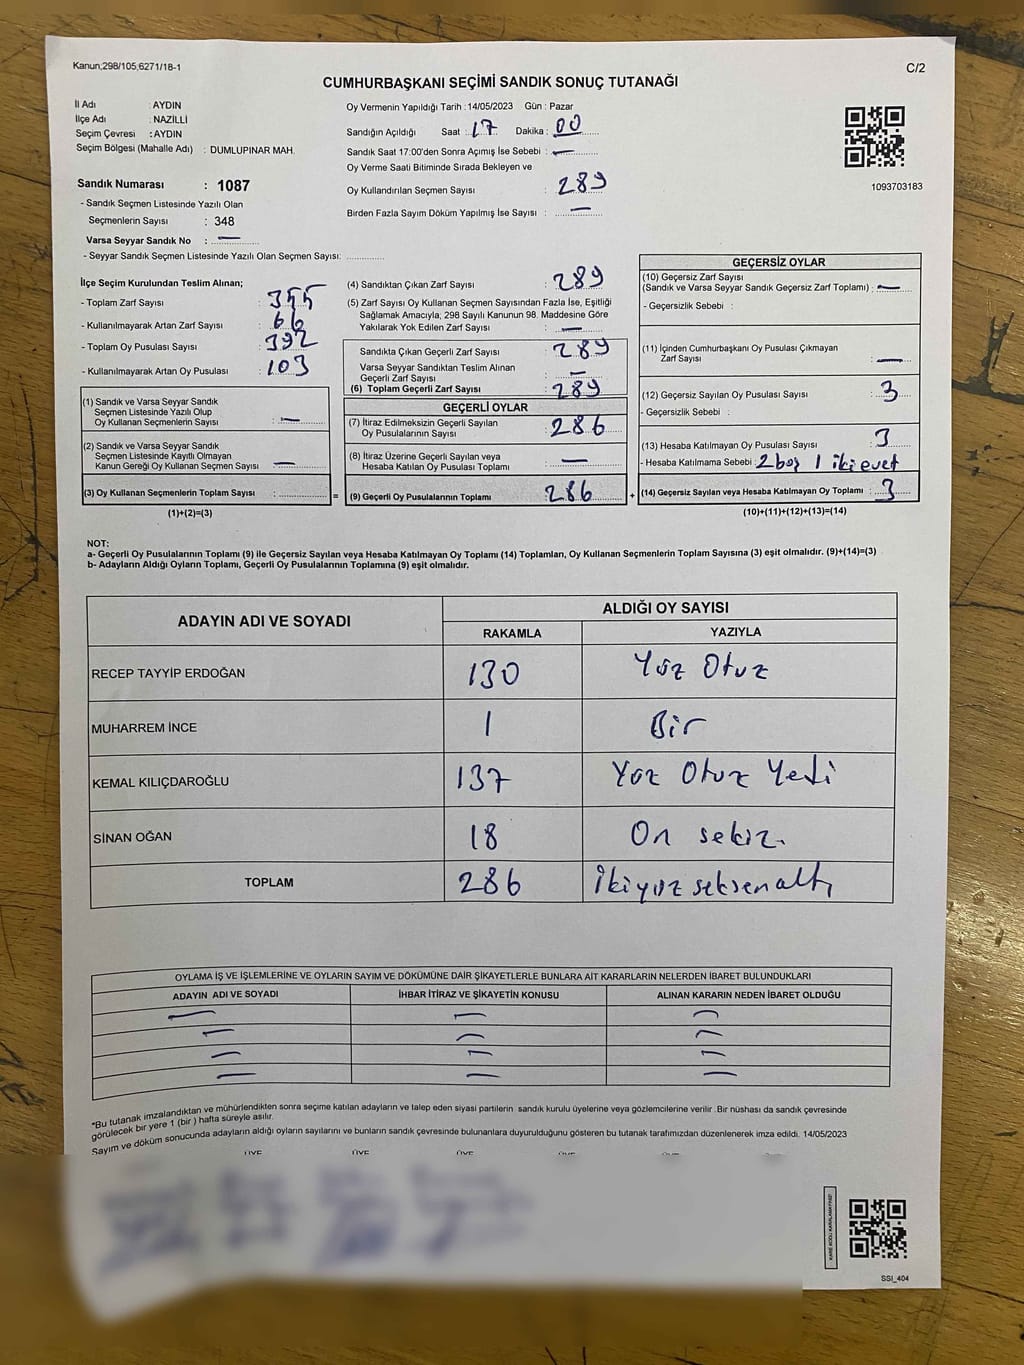 Kanun;298/105;6271/18-1
C/2
CUMHURBAŞKANI SEÇİMİ SANDIK SONUÇ TUTANAĞI
İl Adı : AYDIN
İlçe Adı : NAZİLLİ
Seçim Çevresi : AYDIN
Seçim Bölgesi (Mahalle Adı) : DUMLUPINAR MAH.
Sandık Numarası : 1087
- Sandık Seçmen Listesinde Yazılı Olan
Seçmenlerin Sayısı : 348
Varsa Seyyar Sandık No : —
- Seyyar Sandık Seçmen Listesinde Yazılı Olan Seçmen Sayısı: ..............
Oy Vermenin Yapıldığı Tarih : 14/05/2023 Gün : Pazar
Sandığın Açıldığı Saat : 17 Dakika : 00
Sandık Saat 17:00'den Sonra Açımış İse Sebebi : —
Oy Verme Saati Bitiminde Sırada Bekleyen ve
Oy Kullandırılan Seçmen Sayısı : 289
Birden Fazla Sayım Döküm Yapılmış İse Sayısı : —
1093703183
İlçe Seçim Kurulundan Teslim Alınan;
- Toplam Zarf Sayısı : 355
- Kullanılmayarak Artan Zarf Sayısı : 66
- Toplam Oy Pusulası Sayısı : 392
- Kullanılmayarak Artan Oy Pusulası : 103
(1) Sandık ve Varsa Seyyar Sandık
Seçmen Listesinde Yazılı Olup
Oy Kullanan Seçmenlerin Sayısı : —
(2) Sandık ve Varsa Seyyar Sandık
Seçmen Listesinde Kayıtlı Olmayan
Kanun Gereği Oy Kullanan Seçmen Sayısı : —
(3) Oy Kullanan Seçmenlerin Toplam Sayısı : ..............
(1)+(2)=(3)
=
(4) Sandıktan Çıkan Zarf Sayısı : 289
(5) Zarf Sayısı Oy Kullanan Seçmen Sayısından Fazla İse, Eşitliği
Sağlamak Amacıyla; 298 Sayılı Kanunun 98. Maddesine Göre
Yakılarak Yok Edilen Zarf Sayısı : —
Sandıkta Çıkan Geçerli Zarf Sayısı : 289
Varsa Seyyar Sandıktan Teslim Alınan
Geçerli Zarf Sayısı : —
(6) Toplam Geçerli Zarf Sayısı : 289
GEÇERLİ OYLAR
(7) İtiraz Edilmeksizin Geçerli Sayılan
Oy Pusulalarının Sayısı : 286
(8) İtiraz Üzerine Geçerli Sayılan veya
Hesaba Katılan Oy Pusulası Toplamı : —
(9) Geçerli Oy Pusulalarının Toplamı 286
+
GEÇERSİZ OYLAR
(10) Geçersiz Zarf Sayısı
(Sandık ve Varsa Seyyar Sandık Geçersiz Zarf Toplamı) : —
- Geçersizlik Sebebi :
(11) İçinden Cumhurbaşkanı Oy Pusulası Çıkmayan
Zarf Sayısı : —
(12) Geçersiz Sayılan Oy Pusulası Sayısı : 3
- Geçersizlik Sebebi :
(13) Hesaba Katılmayan Oy Pusulası Sayısı : 3
- Hesaba Katılmama Sebebi : 2 boş 1 iki evet
(14) Geçersiz Sayılan veya Hesaba Katılmayan Oy Toplamı : 3
(10)+(11)+(12)+(13)=(14)
NOT:
a- Geçerli Oy Pusulalarının Toplamı (9) ile Geçersiz Sayılan veya Hesaba Katılmayan Oy Toplamı (14) Toplamları, Oy Kullanan Seçmenlerin Toplam Sayısına (3) eşit olmalıdır. (9)+(14)=(3)
b- Adayların Aldığı Oyların Toplamı, Geçerli Oy Pusulalarının Toplamına (9) eşit olmalıdır.
ADAYIN ADI VE SOYADI
ALDIĞI OY SAYISI
RAKAMLA YAZIYLA
RECEP TAYYİP ERDOĞAN 130 Yüz Otuz
MUHARREM İNCE 1 Bir
KEMAL KILIÇDAROĞLU 137 Yüz Otuz Yedi
SİNAN OĞAN 18 On sekiz.
TOPLAM 286 İkiyüz seksen altı
OYLAMA İŞ VE İŞLEMLERİNE VE OYLARIN SAYIM VE DÖKÜMÜNE DAİR ŞİKAYETLERLE BUNLARA AİT KARARLARIN NELERDEN İBARET BULUNDUKLARI
ADAYIN ADI VE SOYADI İHBAR İTİRAZ VE ŞİKAYETİN KONUSU ALINAN KARARIN NEDEN İBARET OLDUĞU
— — —
— — —
— — —
— — —
*Bu tutanak imzalandıktan ve mühürlendikten sonra seçime katılan adayların ve talep eden siyasi partilerin sandık kurulu üyelerine veya gözlemcilerine verilir .Bir nüshası da sandık çevresinde
görülecek bir yere 1 (bir ) hafta süreyle asılır.
Sayım ve döküm sonucunda adayların aldığı oyların sayılarını ve bunların sandık çevresinde bulunanlara duyurulduğunu gösteren bu tutanak tarafımızdan düzenlenerek imza edildi. 14/05/2023
ÜYE ÜYE ÜYE ÜYE ÜYE
SSI_404